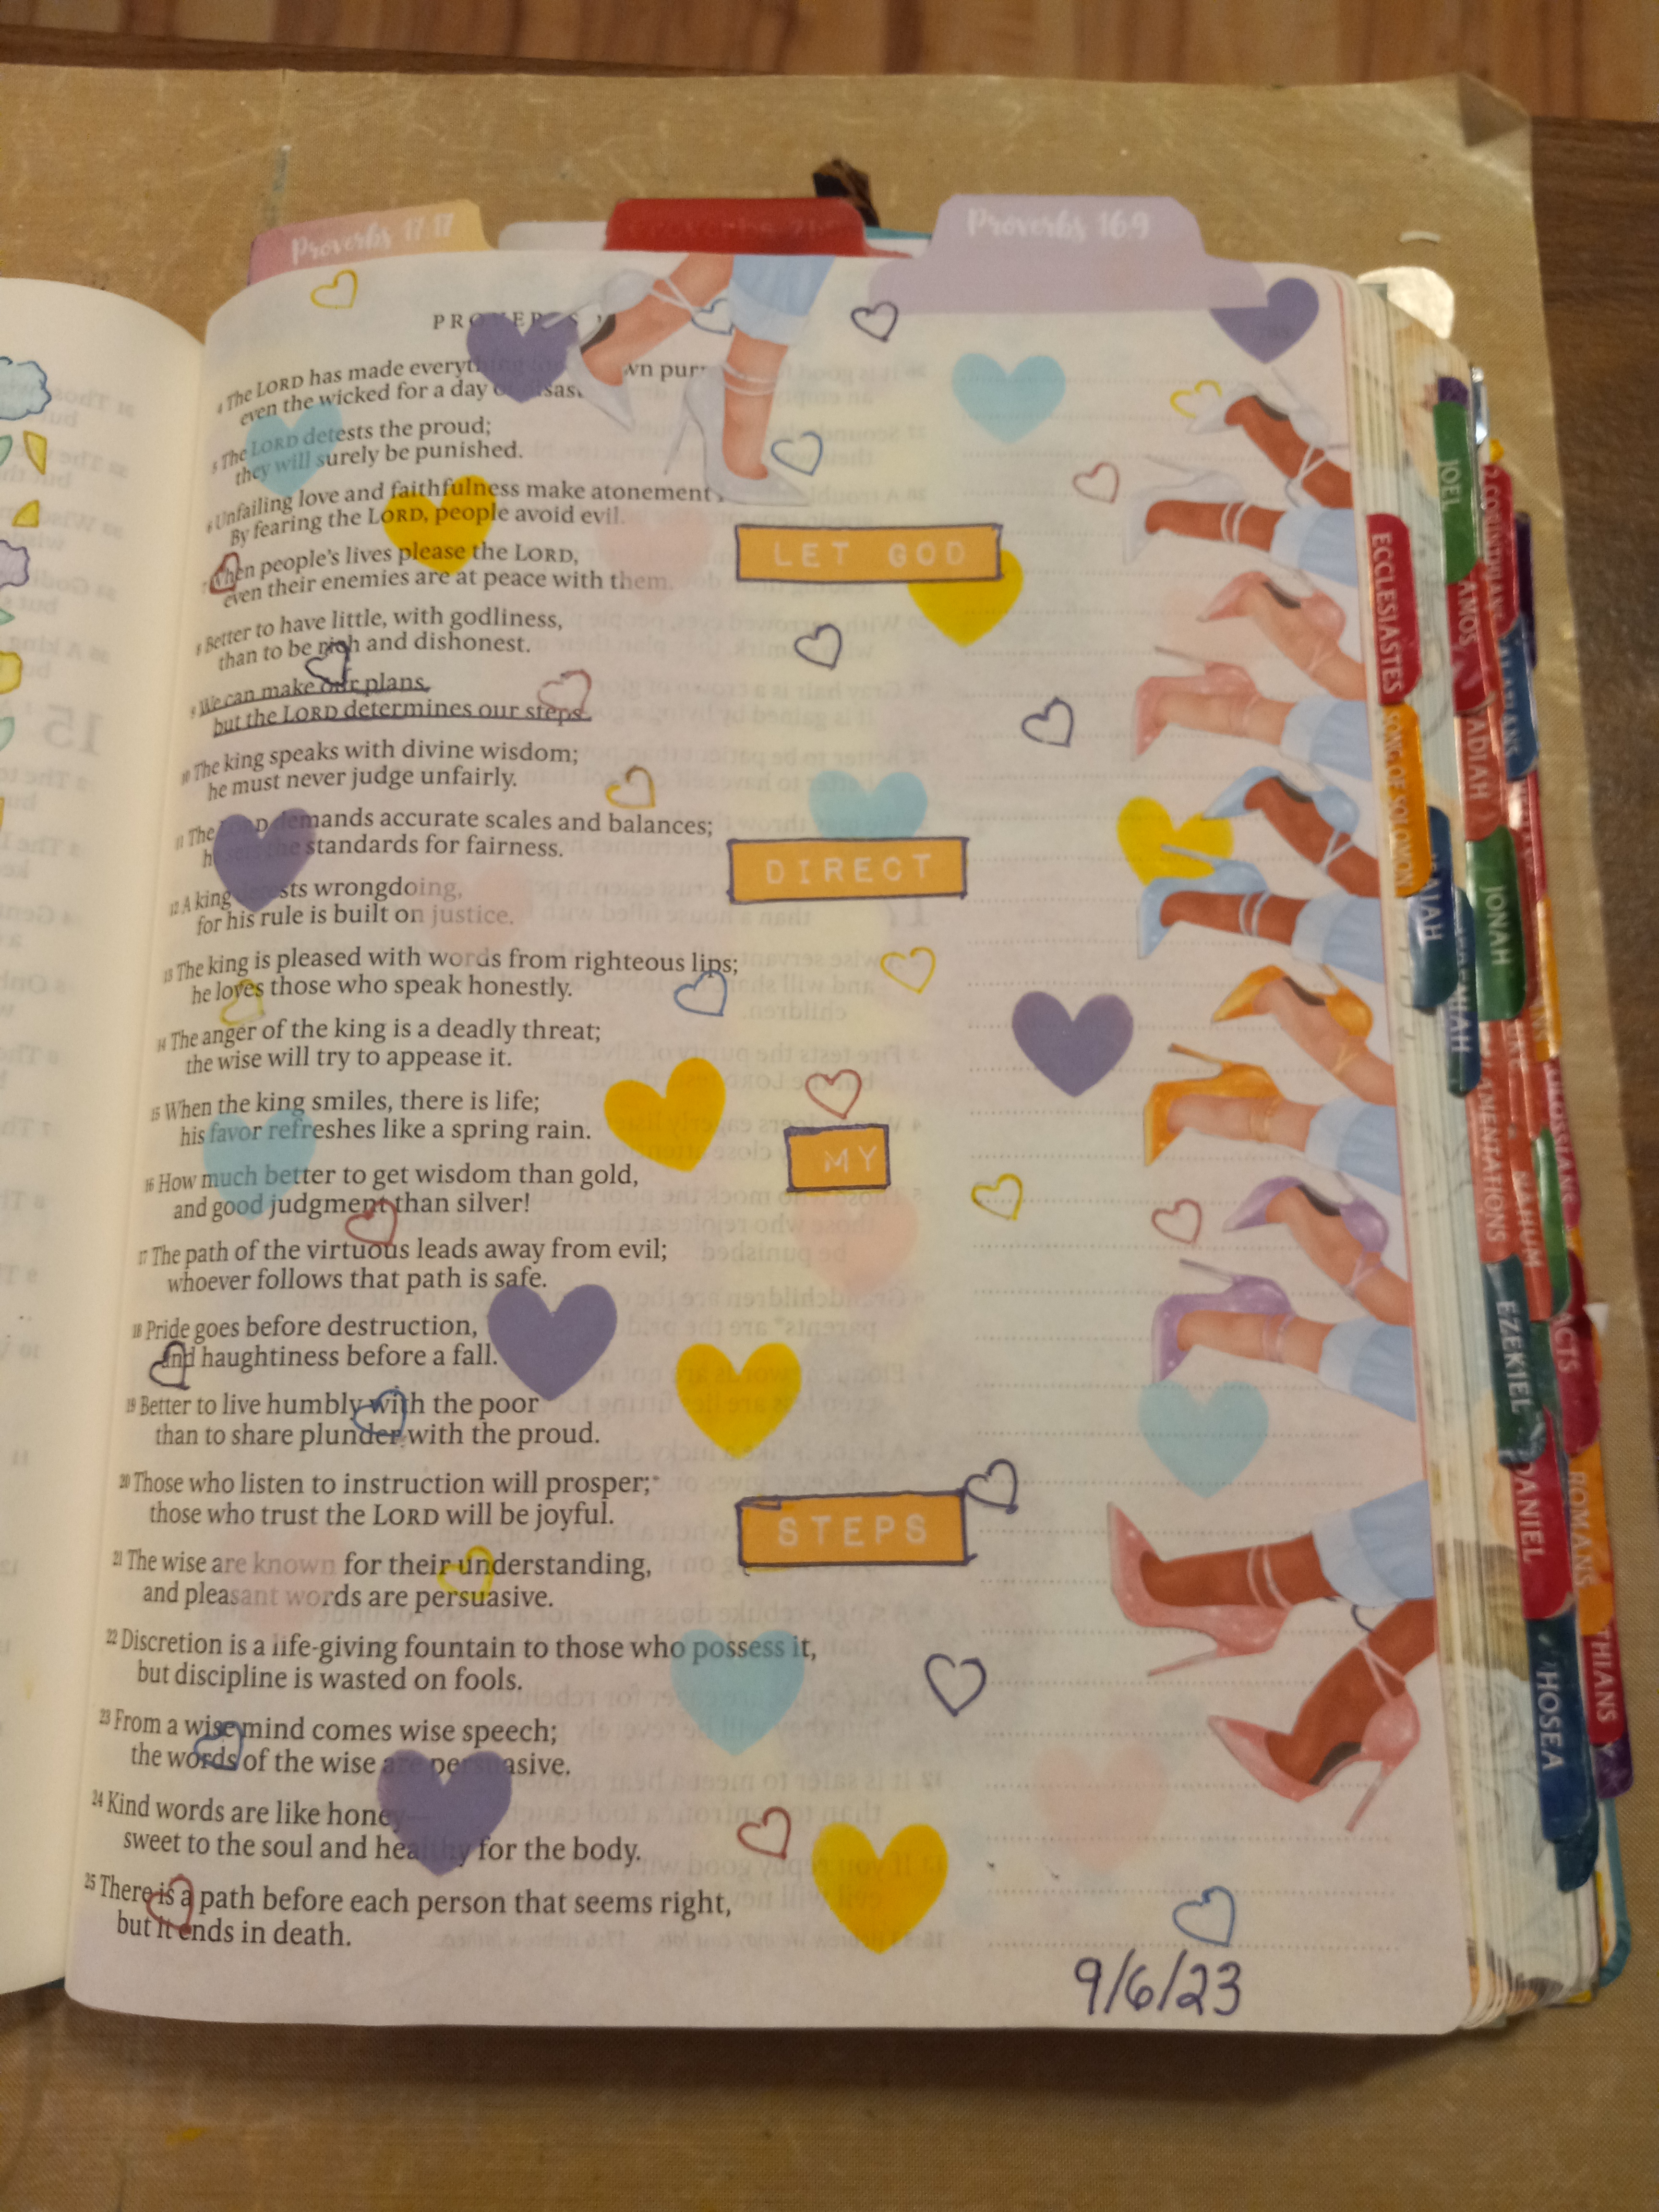 Proverbs 17:17
Proverbs 16:9
PROVERBS
4 The LORD has made everything own
even the wicked for a day of disas
5 The LORD detests the proud;
they will surely be punished.
6 Unfailing love and faithfulness make atonement
By fearing the LORD, people avoid evil.
7 When people's lives please the LORD,
even their enemies are at peace with them.
LET GOD
8 Better to have little, with godliness,
than to be rich and dishonest.
9 We can make our plans,
but the LORD determines our steps.
10 The king speaks with divine wisdom;
he must never judge unfairly.
11 The LORD demands accurate scales and balances;
he sets the standards for fairness.
DIRECT
12 A king detests wrongdoing,
for his rule is built on justice.
13 The king is pleased with words from righteous lips;
he loves those who speak honestly.
14 The anger of the king is a deadly threat;
the wise will try to appease it.
15 When the king smiles, there is life;
his favor refreshes like a spring rain.
MY
16 How much better to get wisdom than gold,
and good judgment than silver!
17 The path of the virtuous leads away from evil;
whoever follows that path is safe.
18 Pride goes before destruction,
and haughtiness before a fall.
19 Better to live humbly with the poor
than to share plunder with the proud.
20 Those who listen to instruction will prosper;*
those who trust the LORD will be joyful.
STEPS
21 The wise are known for their understanding,
and pleasant words are persuasive.
22 Discretion is a life-giving fountain to those who possess it,
but discipline is wasted on fools.
23 From a wise mind comes wise speech;
the words of the wise are persuasive.
24 Kind words are like honey—
sweet to the soul and healthy for the body.
25 There is a path before each person that seems right,
but it ends in death.
9/6/23
ECCLESIASTES
SONG OF SOLOMON
ISAIAH
JEREMIAH
LAMENTATIONS
EZEKIEL
DANIEL
HOSEA
JOEL
AMOS
OBADIAH
JONAH
NAHUM
ACTS
ROMANS
THIANS
2 CORINTHIANS
GALATIANS
COLOSSIANS
15